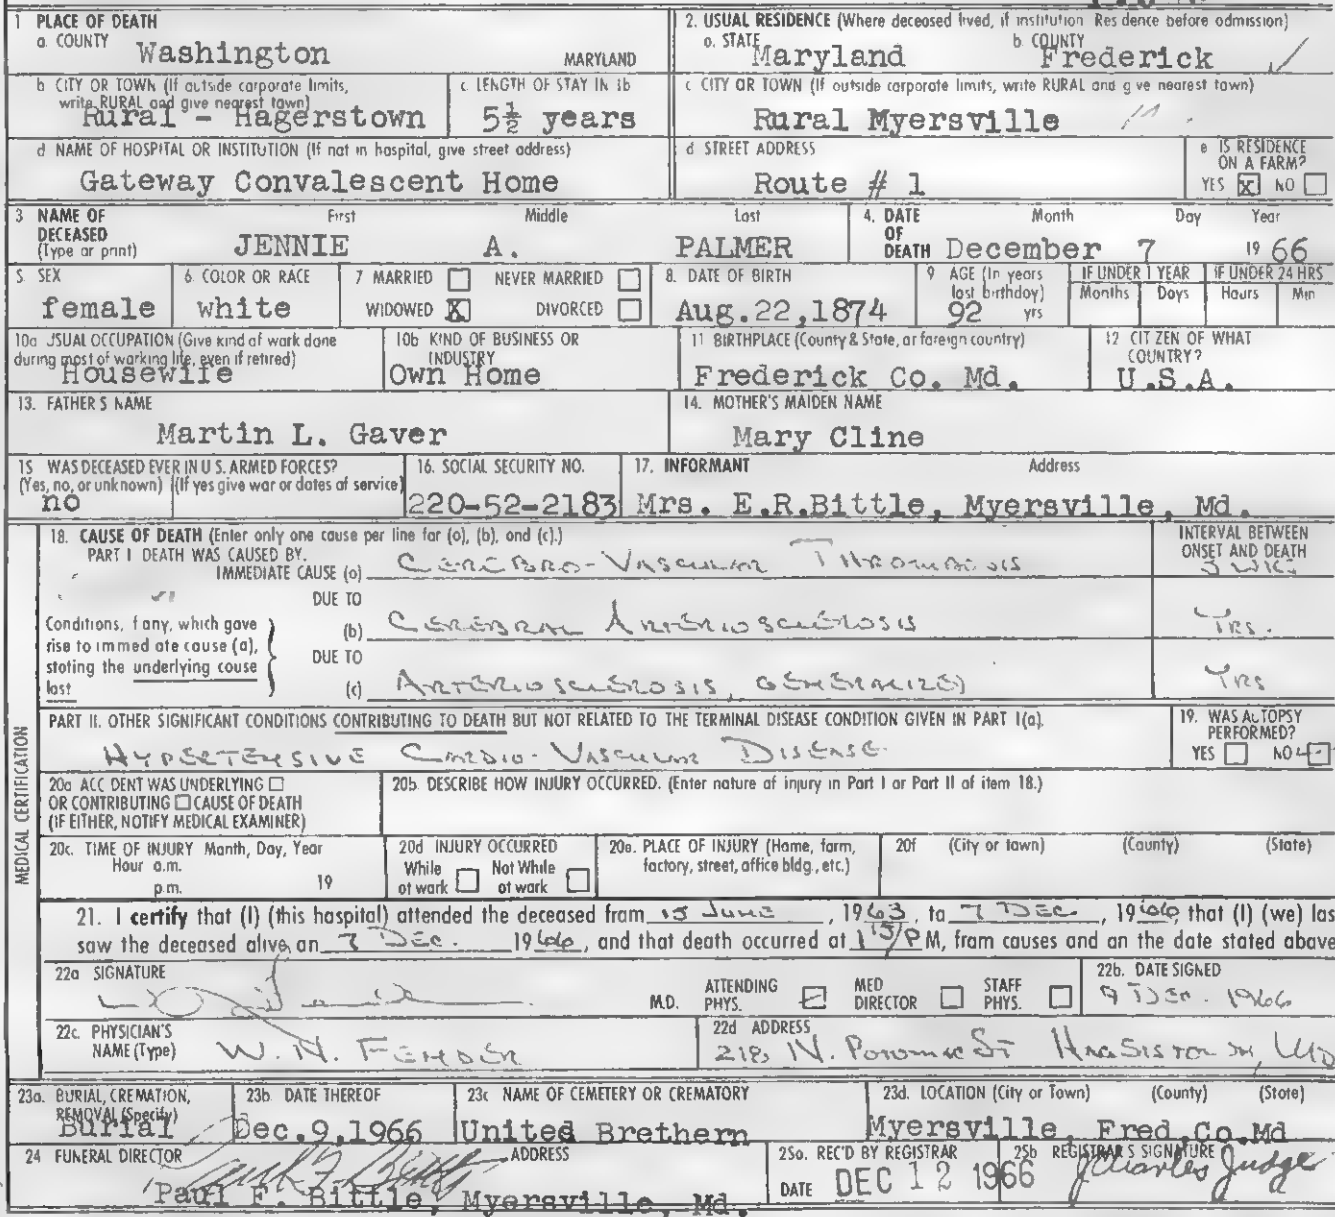 1 PLACE OF DEATH
a. COUNTY Washington MARYLAND
2. USUAL RESIDENCE (Where deceased lived, if institution Residence before admission)
a. STATE Maryland b COUNTY Frederick
b CITY OR TOWN (If outside corporate limits, write RURAL and give nearest town)
Rural - Hagerstown
c LENGTH OF STAY IN 1b
5½ years
c CITY OR TOWN (If outside corporate limits, write RURAL and give nearest town)
Rural Myersville
d NAME OF HOSPITAL OR INSTITUTION (If not in hospital, give street address)
Gateway Convalescent Home
d STREET ADDRESS
Route # 1
e IS RESIDENCE ON A FARM?
YES X NO
3 NAME OF DECEASED (Type or print)
First Middle Last
JENNIE A. PALMER
4. DATE OF DEATH
Month Day Year
December 7 1966
5. SEX
female
6. COLOR OR RACE
white
7 MARRIED NEVER MARRIED
WIDOWED X DIVORCED
8. DATE OF BIRTH
Aug.22,1874
9 AGE (In years last birthday)
92 yrs
IF UNDER 1 YEAR
Months Days
IF UNDER 24 HRS
Hours Min
10a USUAL OCCUPATION (Give kind of work done during most of working life, even if retired)
Housewife
10b KIND OF BUSINESS OR INDUSTRY
Own Home
11 BIRTHPLACE (County & State, or foreign country)
Frederick Co. Md.
12 CITIZEN OF WHAT COUNTRY?
U.S.A.
13. FATHER'S NAME
Martin L. Gaver
14. MOTHER'S MAIDEN NAME
Mary Cline
15 WAS DECEASED EVER IN U S. ARMED FORCES?
(Yes, no, or unknown) (If yes give war or dates of service)
no
16. SOCIAL SECURITY NO.
220-52-2183
17. INFORMANT Address
Mrs. E.R.Bittle, Myersville, Md.
MEDICAL CERTIFICATION
18. CAUSE OF DEATH (Enter only one cause per line for (a), (b), and (c).)
INTERVAL BETWEEN ONSET AND DEATH
PART I DEATH WAS CAUSED BY.
IMMEDIATE CAUSE (a) CEREBRO-VASCULAR THROMBOSIS 3 WKS.
Conditions, if any, which gave rise to immediate cause (a), stating the underlying cause last
DUE TO
(b) CEREBRAL ARTERIOSCLEROSIS YRS.
DUE TO
(c) ARTERIOSCLEROSIS, GENERALIZED YRS
PART II. OTHER SIGNIFICANT CONDITIONS CONTRIBUTING TO DEATH BUT NOT RELATED TO THE TERMINAL DISEASE CONDITION GIVEN IN PART I(a).
HYPERTENSIVE CARDIO-VASCULAR DISEASE
19. WAS AUTOPSY PERFORMED?
YES NO
20a ACCIDENT WAS UNDERLYING
OR CONTRIBUTING CAUSE OF DEATH
(IF EITHER, NOTIFY MEDICAL EXAMINER)
20b. DESCRIBE HOW INJURY OCCURRED. (Enter nature of injury in Part I or Part II of item 18.)
20c. TIME OF INJURY Month, Day, Year
Hour a.m.
p.m. 19
20d INJURY OCCURRED
While at work Not While at work
20e. PLACE OF INJURY (Home, farm, factory, street, office bldg., etc.)
20f (City or town) (County) (State)
21. I certify that (I) (this hospital) attended the deceased from 15 JUNE, 1963, to 7 DEC, 1966, that (I) (we) las
saw the deceased alive, on 7 DEC. 1966, and that death occurred at P M, from causes and on the date stated above
22a SIGNATURE
M.D. ATTENDING PHYS. MED DIRECTOR STAFF PHYS.
22b. DATE SIGNED
9 DEC. 1966
22c. PHYSICIAN'S NAME (Type)
W. N. FENDER
22d ADDRESS
218 N. POTOMAC ST HAGERSTOWN, MD
23a. BURIAL, CREMATION, REMOVAL (Specify)
Burial
23b. DATE THEREOF
Dec.9,1966
23c NAME OF CEMETERY OR CREMATORY
United Brethern
23d. LOCATION (City or Town) (County) (State)
Myersville, Fred.Co.Md
24 FUNERAL DIRECTOR ADDRESS
Paul F. Bittle
Paul F. Bittle, Myersville, Md.
25a. REC'D BY REGISTRAR
DATE DEC 12 1966
25b REGISTRAR'S SIGNATURE
J Charles Judge